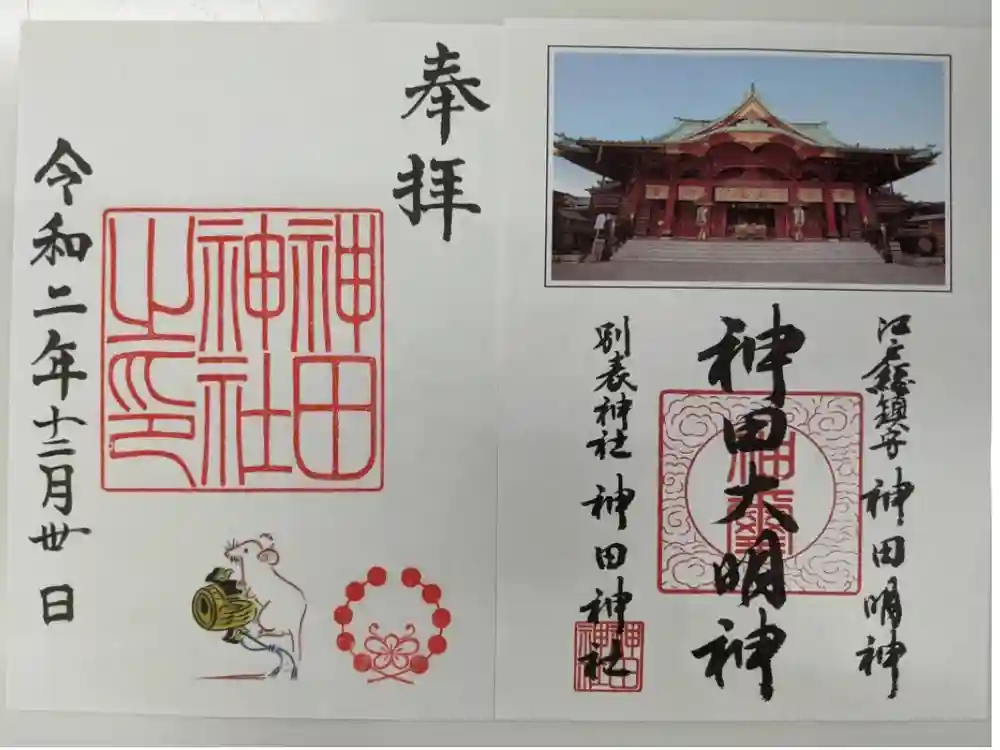 江戸総鎮守 神田明神
神田大明神
別表神社 神田神社
神田神社
奉拝
神田
神社
之印
令和二年十二月卅日